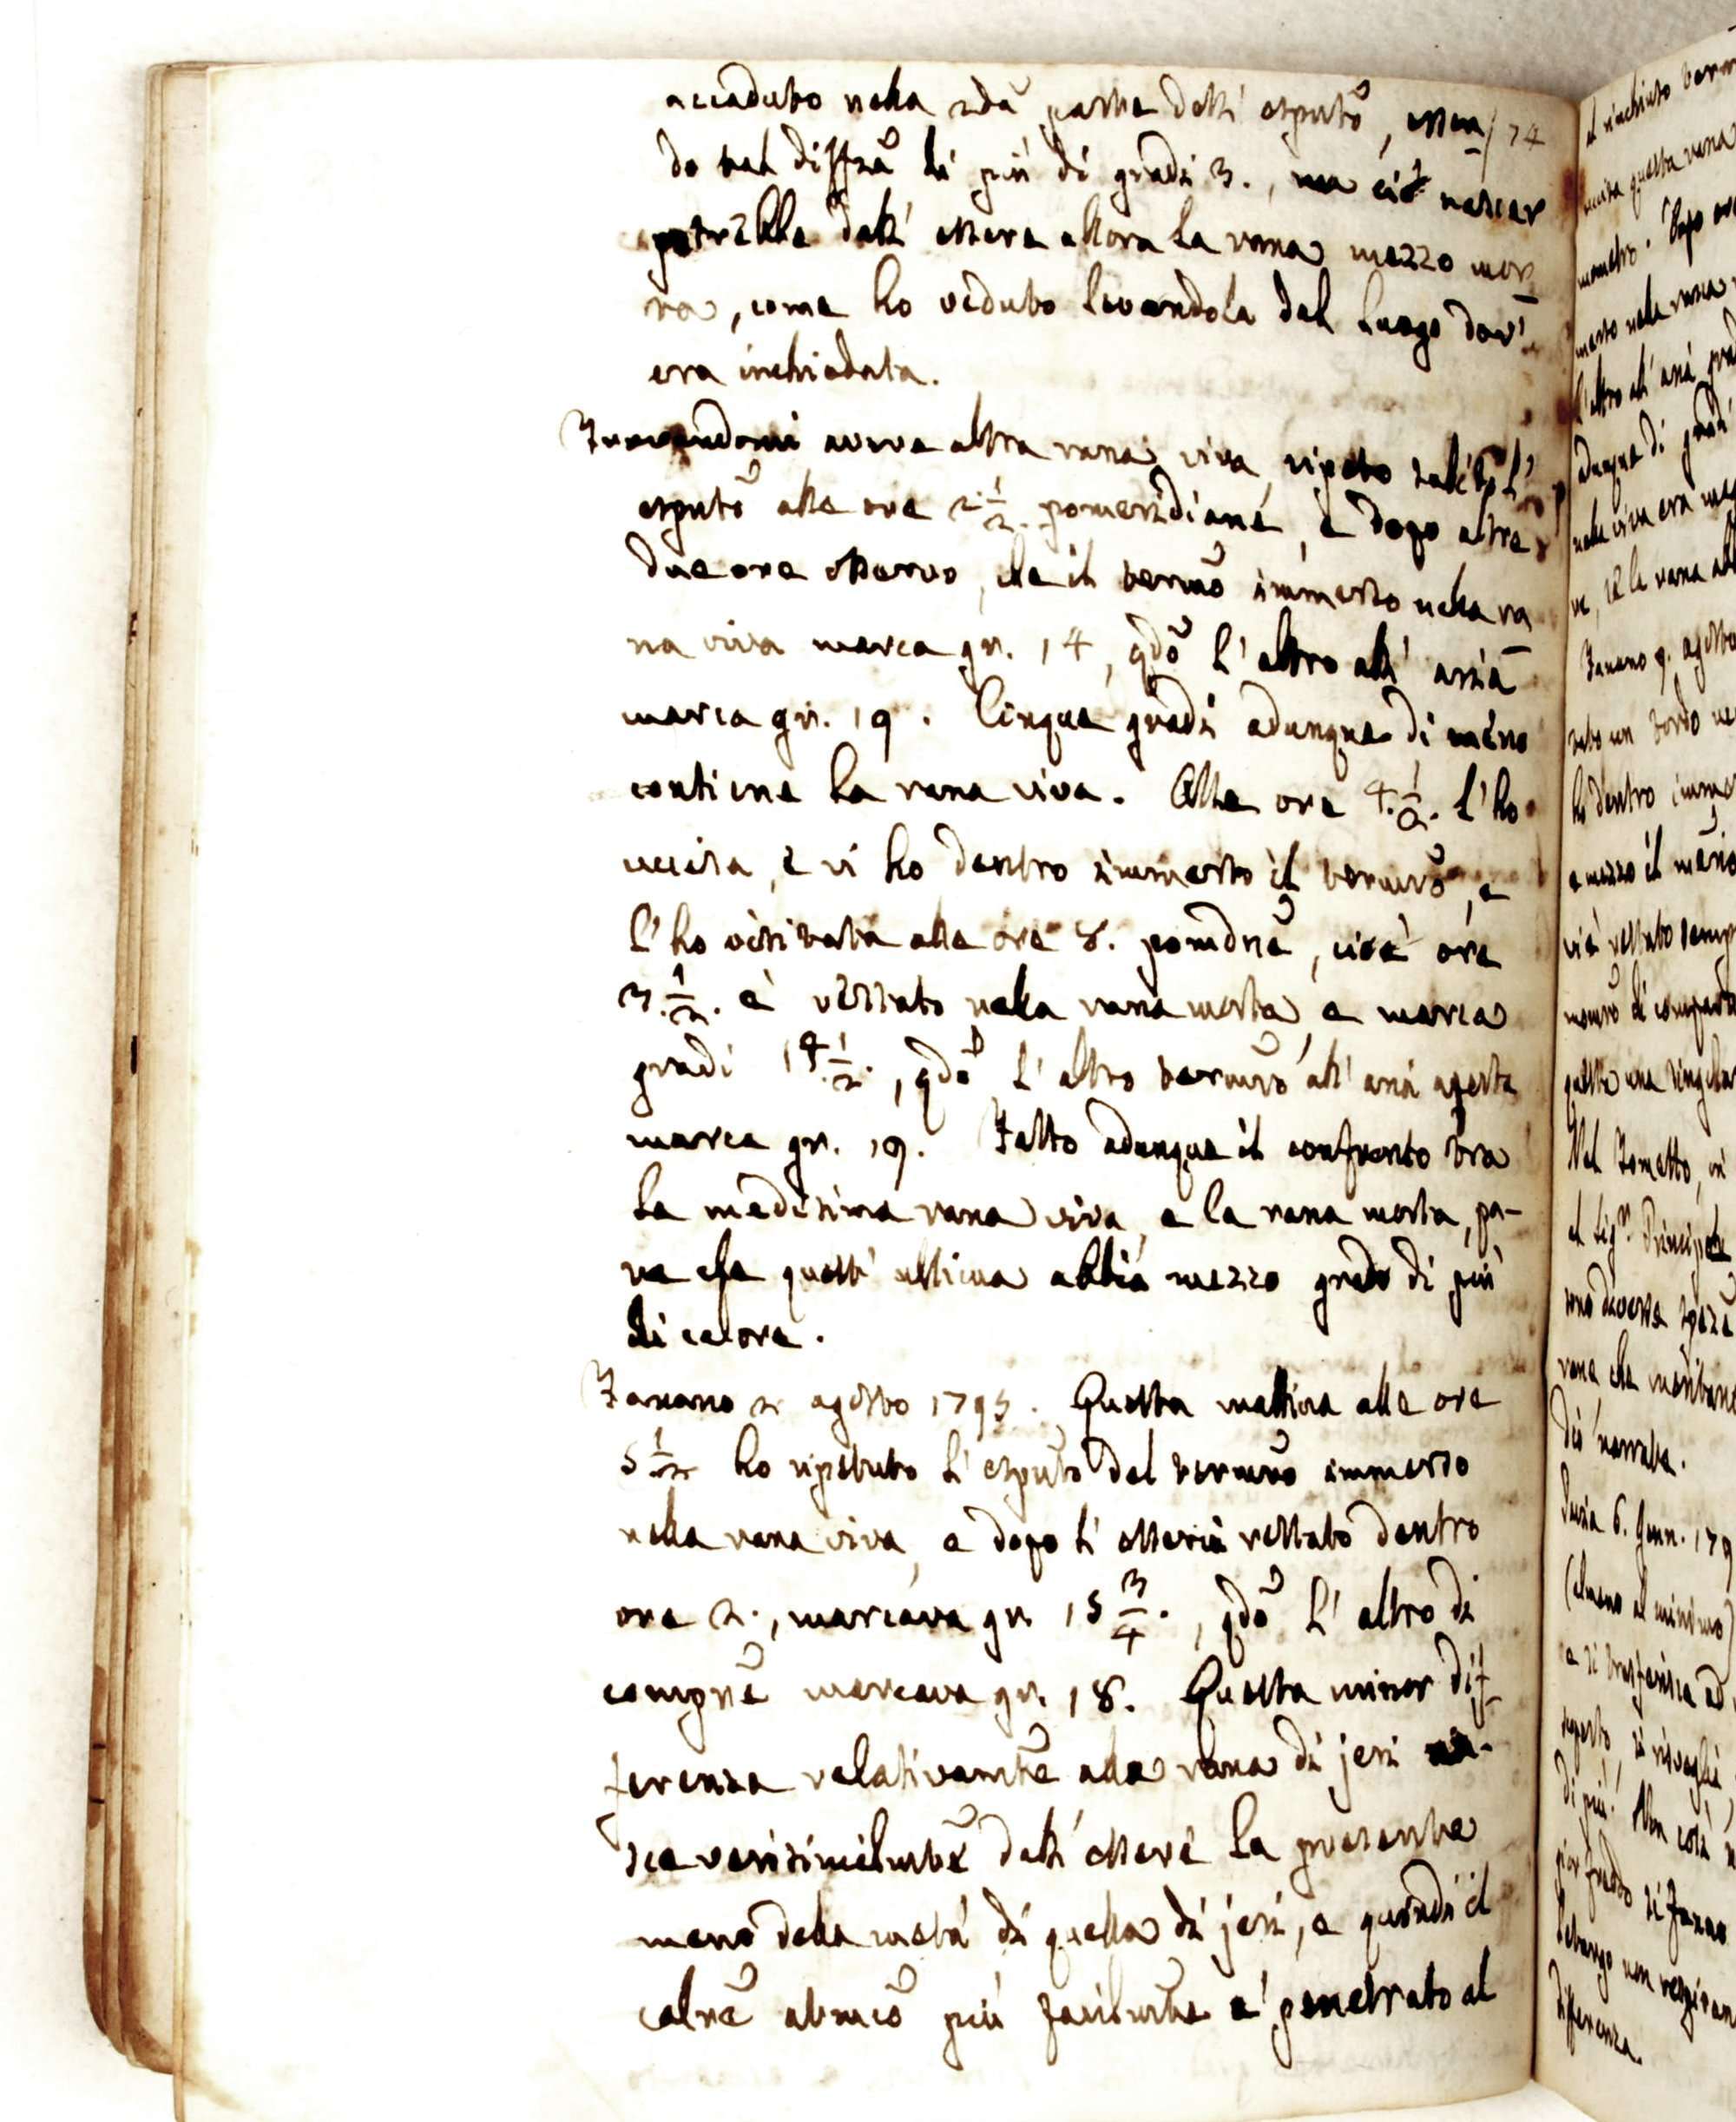 accaduto nella 2da parte dell' esputo, essen/ 74
do tal diffza di più di gradi 3., ma ciò nascer
potrebbe dall' essere allora la rana mezzo mor
ta, come ho veduto levandola dal luogo dov'
era inchiodata.
Trovandomi avere altra rana viva, ripeto subito l'
esputo alle ore 2 1/2. pomeridiane, e dopo altre
due ore osservo, che il termo immerso nella ra
na viva marca gr. 14, qdo l' altro all' aria
marca gr. 19. Cinque gradi adunque di meno
contiene la rana viva. Alle ore 4. 1/2. l' ho
uccisa, e vi ho dentro immerso il termro, e
l' ho visitata alle ore 8. pomdne, cioè ore
3. 1/2. è restato nella rana morta, e marca
gradi 14 1/2., qdo l' altro termro all' aria aperta
marca gr. 19. Fatto adunque il confronto tra
la medesima rana viva, e la rana morta, pa-
re che quest' ultima abbia mezzo grado di più
di calore.
Fanano 2 agosto 1795. Questa mattina alle ore
5 1/2 ho ripetuto l' esputo del termro immerso
nella rana viva, e dopo l' esservi restato dentro
ore 2., marcava gr. 15 3/4., qdo l' altro di
compne marcava gr. 18. Questa minor dif
ferenza relativamte alla rana di jeri na-
sce verisimilmte dall' essere la presente
meno della metà di quella di jeri, e quindi il
calre atmco più facilmte è penetrato al
il rinchiuso
uccisa questa rana
mometro. Dopo
merso nella rana
l' altro all' aria
adunque di gradi
nella viva era
Fanano 9. agosto
un tordo
ho dentro
a mezzo il
vi è restato
mometro di
questa una
Nel Tometto, in
al Sigr. Principe
sono diverse spezie
rane, che meritano
narrate.
Pavia 6. Genn. 179
(almeno al minimo)
e si trasferisca ad
di più. Non così
gior freddo di Fanano
letargo non respiran
differenza.